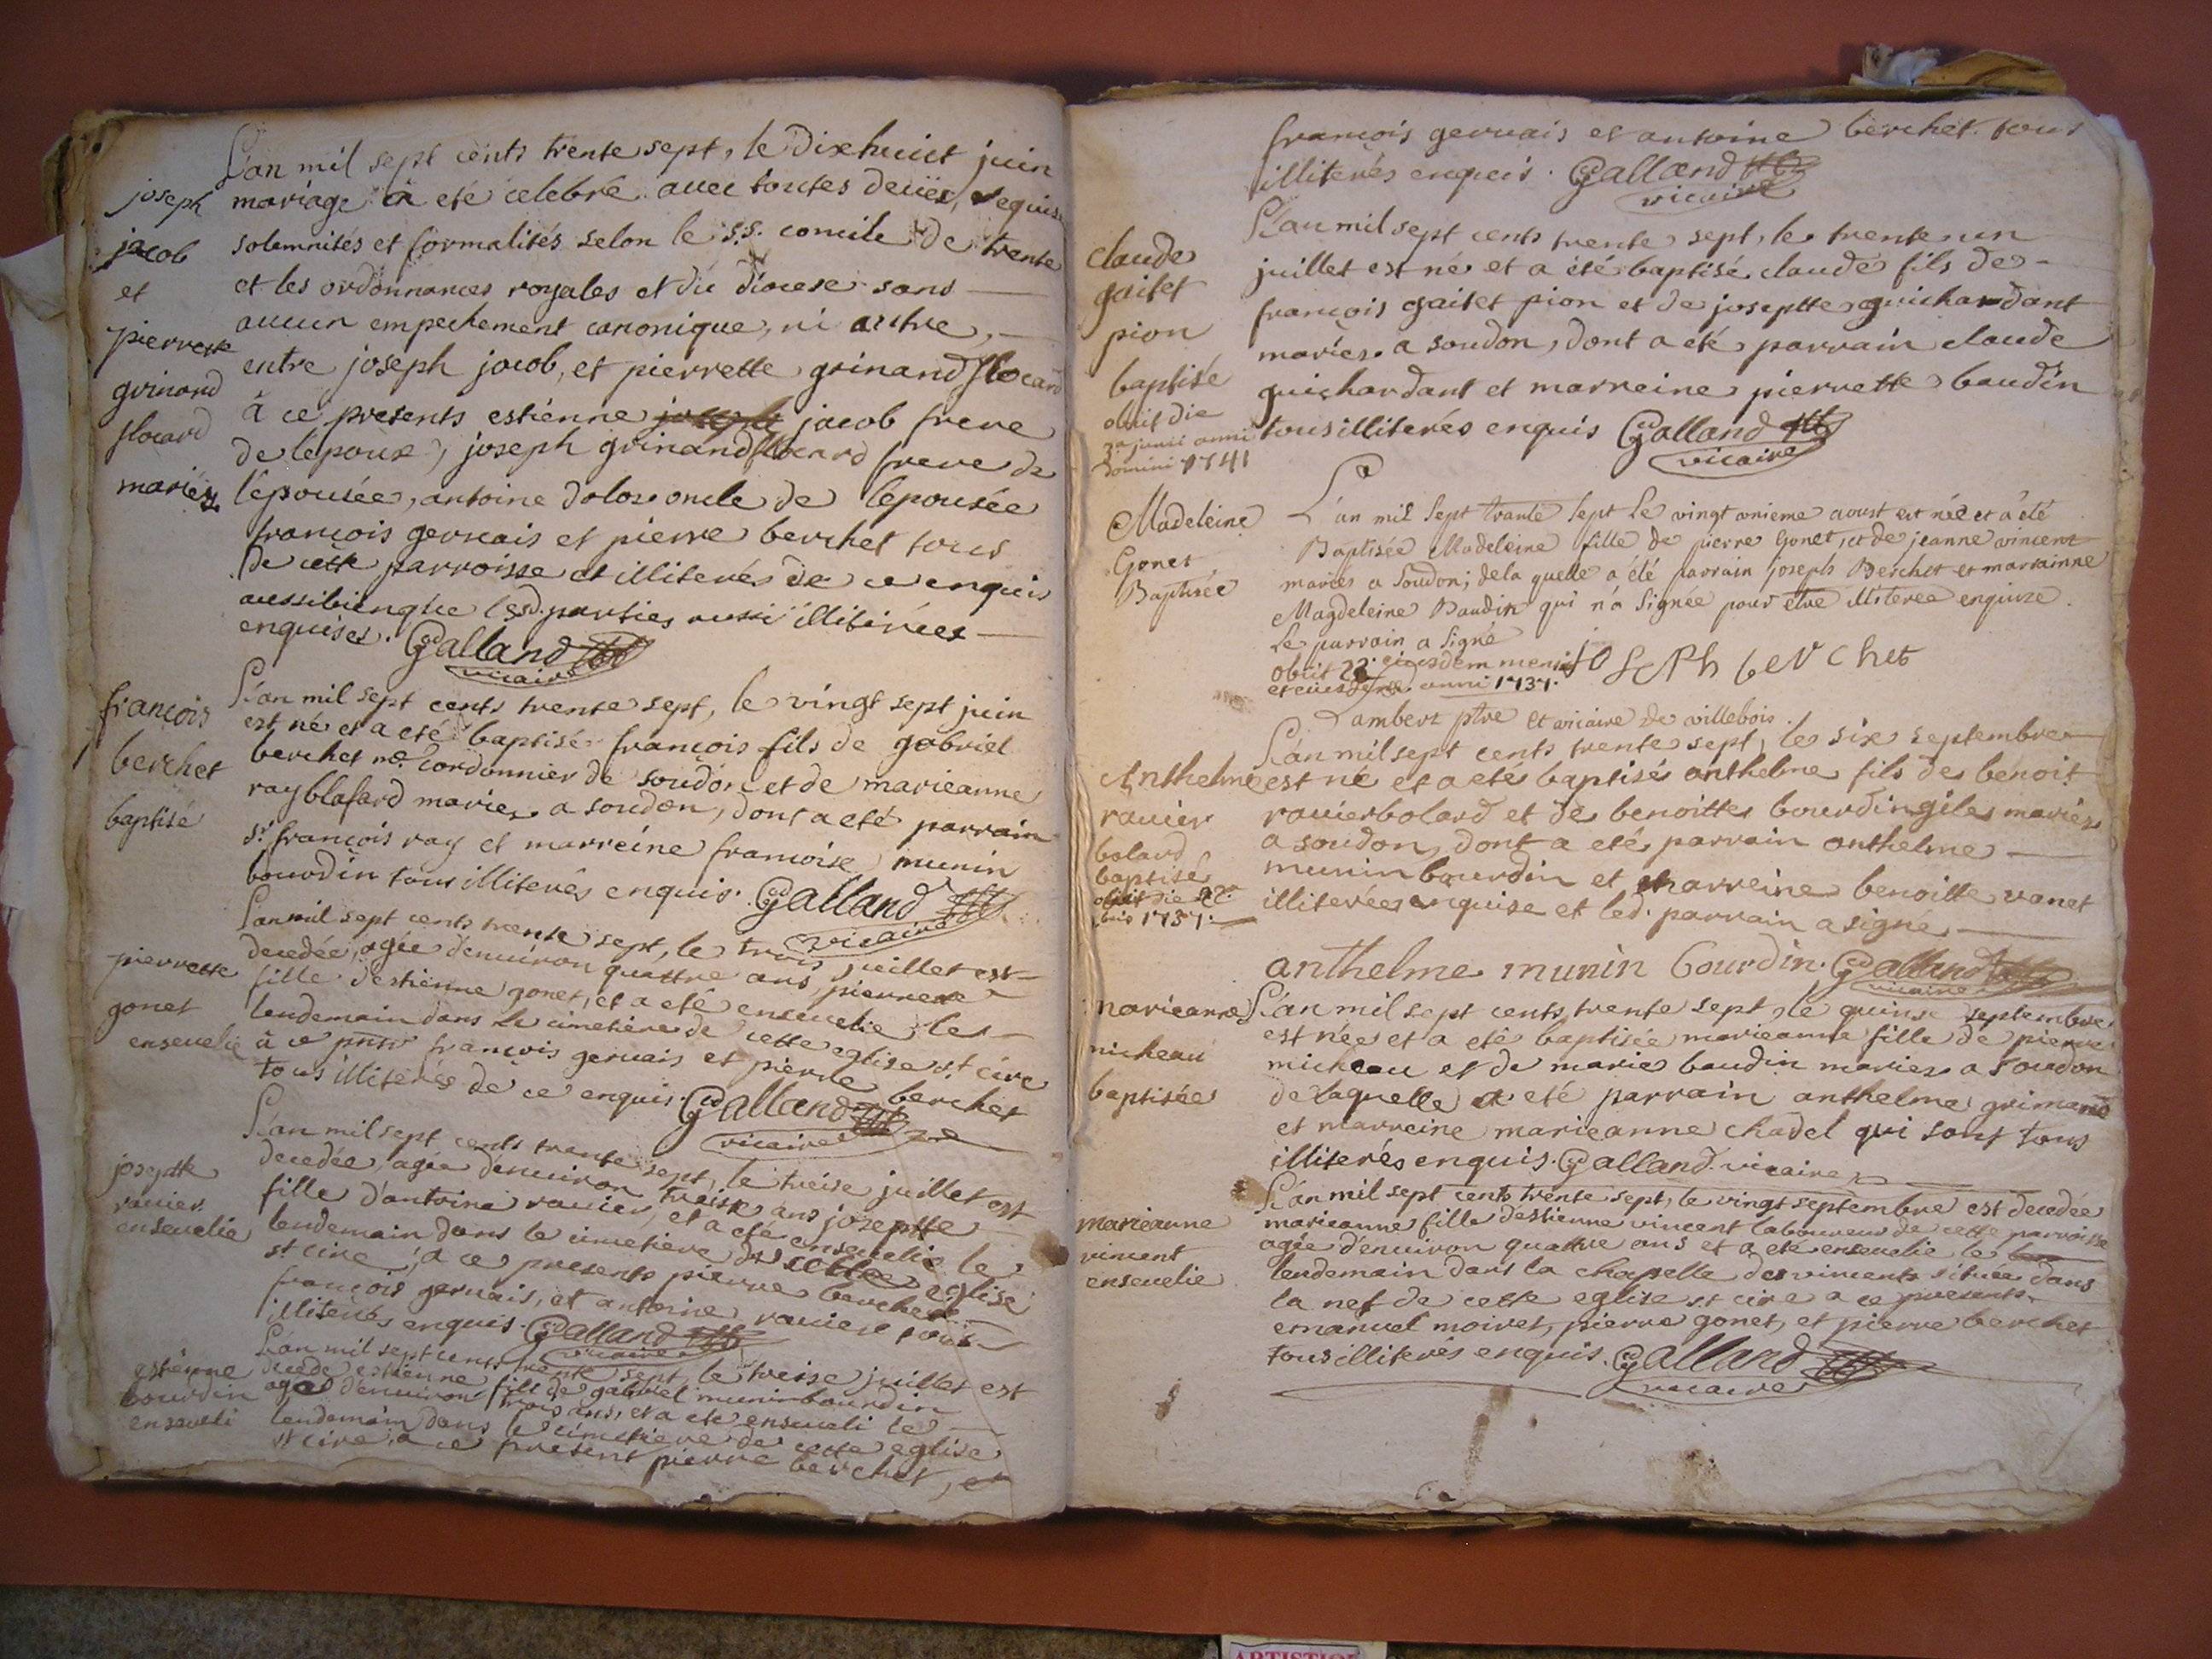 L'an mil sept cents trente sept, le dixhuict juin
joseph mariage a eté celebré avec toutes deües, requises
jacob solemnités et formalités selon le s.s. concile de trente
et et les ordonnances royales et du diocese sans
aucun empechement canonique, ni autre,
pierrette entre joseph jacob, et pierrette grinand flocard
grinand à ce presents estienne joseph jacob frere
flocard de lepoux, joseph grinand flocard frere de
mariés lépousée, antoine doloz oncle de lepousée
françois gervais et pierre berchet tous
de cette parroisse et illiterés de ce enquis
aussibienque lesd. parties aussi illiterées
enquises. Galland
vicaire
L'an mil sept cents trente sept, le vingt sept juin
françois est né et a eté baptisé françois fils de gabriel
berchet berchet me cordonnier de soudon et de marieanne
ray blafard mariés a soudon, dont a eté parrain
baptisé sr françois ray et marreine francoise munin
bourdin tous illiterés enquis. Galland
vicaire
L'an mil sept cents trente sept, le trois juillet est
decedée, agée d'environ quattre ans, pierrette
pierrette fille d'estienne gonet, et a eté ensevelie le
gonet lendemain dans le cimetiere de cette eglise st cire
ensevelie à ce pnts françois gervais et pierre berchet
tous illiterés de ce enquis. Galland
vicaire
L'an mil sept cents trente sept, le treise juillet est
decedée, agée d'environ treise ans josephte
josephte fille d'antoine ravier, et a eté ensevelie le
ravier lendemain dans le cimetiere de cette eglise
ensevelie st cire, a ce presents pierre berchet
françois gervais, et antoine ravier tous
illiterés enquis. Galland
vicaire
L'an mil sept cents trente sept, le treise juillet est
estienne decede estienne fils de gabriel munin bourdin
bourdin agé d'environ trois ans, et a eté enseveli le
enseveli lendemain dans le cimetiere de cette eglise
st cire, a ce present pierre berchet, et
françois gervais et antoine berchet tous
illiterés enqueis. Galland
vicaire
L'an mil sept cents trente sept, le trente un
claude juillet est né et a été baptisé claude fils de
gaitet françois gaitet pion et de josephte guichardant
pion mariés a soudon, dont a eté parrain claude
baptisé guichardant et marreine pierrette baudin
obiit die
3a junii anni tous illiterés enquis Galland
domini 1741 vicaire
L'an mil sept trante sept le vingt onieme aoust est née et a été
Madeleine Baptisée Madeleine fille de pierre Gonet, et de jeanne vincent
Gonet mariés a Soudon; de la quelle a été parrain joseph Berchet et marrainne
Baptisée Magdeleine Baudin qui n'a Signée pour être illiteree enquize.
Le parrain a Signé
obiit 22 eiusdem mensis joseph berchet
et eiusdem anni 1737.
Lambert ptre et vicaire de villebois.
L'an mil sept cents trente sept, le six septembre
Anthelme est né et a eté baptisé anthelme fils de benoit
ravier ravierbolard et de benoitte bourdingile mariés
bolard a soudon, dont a eté parrain anthelme
baptisé munin bourdin et marreine benoitte vanet
obiit die
1737. illiterée enquise et led. parrain a signé
anthelme munin bourdin. Galland
vicaire
marieanne L'an mil sept cents trente sept, le quinse septembre
est née et a eté baptisée marieanne fille de pierre
micheau micheau et de marie baudin mariés a soudon
baptisée de laquelle a eté parrain anthelme grimand
et marreine marieanne chadel qui sont tous
illiterés enquis. Galland. vicaire
L'an mil sept cents trente sept, le vingt septembre est decedée
marieanne marieanne fille d'estienne vincent laboureur de cette parroisse
vincent agée d'environ quattre ans et a eté ensevelie le
ensevelie lendemain dans la chapelle des vincents située dans
la nef de cette eglise st cire a ce presents
emanuel moiret, pierre gonet, et pierre berchet
tous illiterés enquis. Galland
vicaire